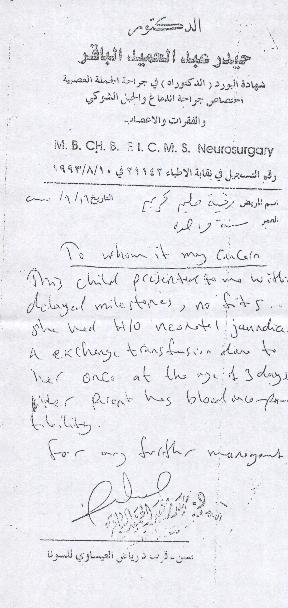 الدكتور
حيدر عبد الحميد الباقر
شهادة البورد (الدكتوراه) في جراحة الجملة العصبية
اختصاص جراحة الدماغ والحبل الشوكي
والفقرات والاعصاب
M. B. CH. B. F. I. C. M. S. Neurosurgary
رقم التسجيل في نقابة الاطباء ٢٩١٤٢ في ١٩٩٣/٨/١٠
اسم المريض كريم التاريخ
العمر سنة
To whom it may concern
This child presented to me with
delayed milestones, no fits.
she had H/O neonatal jaundice
& exchange transfusion done to
her once at the age of 3 days
her parent has blood incompa
tibility.
for any further managemt
قرب د. رياض العيساوي للسونار